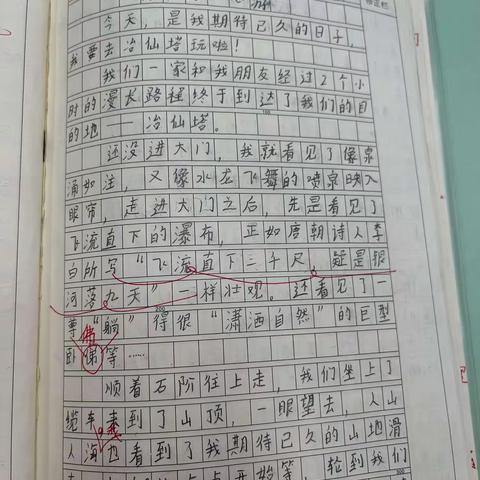 今天，是我期待已久的日子，
我要去冶仙塔玩啦！
我们一家和我朋友经过2个小
时的漫长路程终于到达了我们的目
的地——冶仙塔。
还没进大门，我就看见了像泉
涌如注，又像水龙飞舞的喷泉映入
眼帘，走进大门之后，先是看见了
飞流直下的瀑布，正如唐朝诗人李
白所写“飞流直下三千尺，疑是银
河落九天”一样壮观。还看见了一
尊“躺”得很“潇洒自然”的巨型
卧佛等……
顺着石阶往上走，我们坐上了
缆车来到了山顶，一眼望去，人山
人海也看到了我期待已久的山地滑
开始等，轮到我们